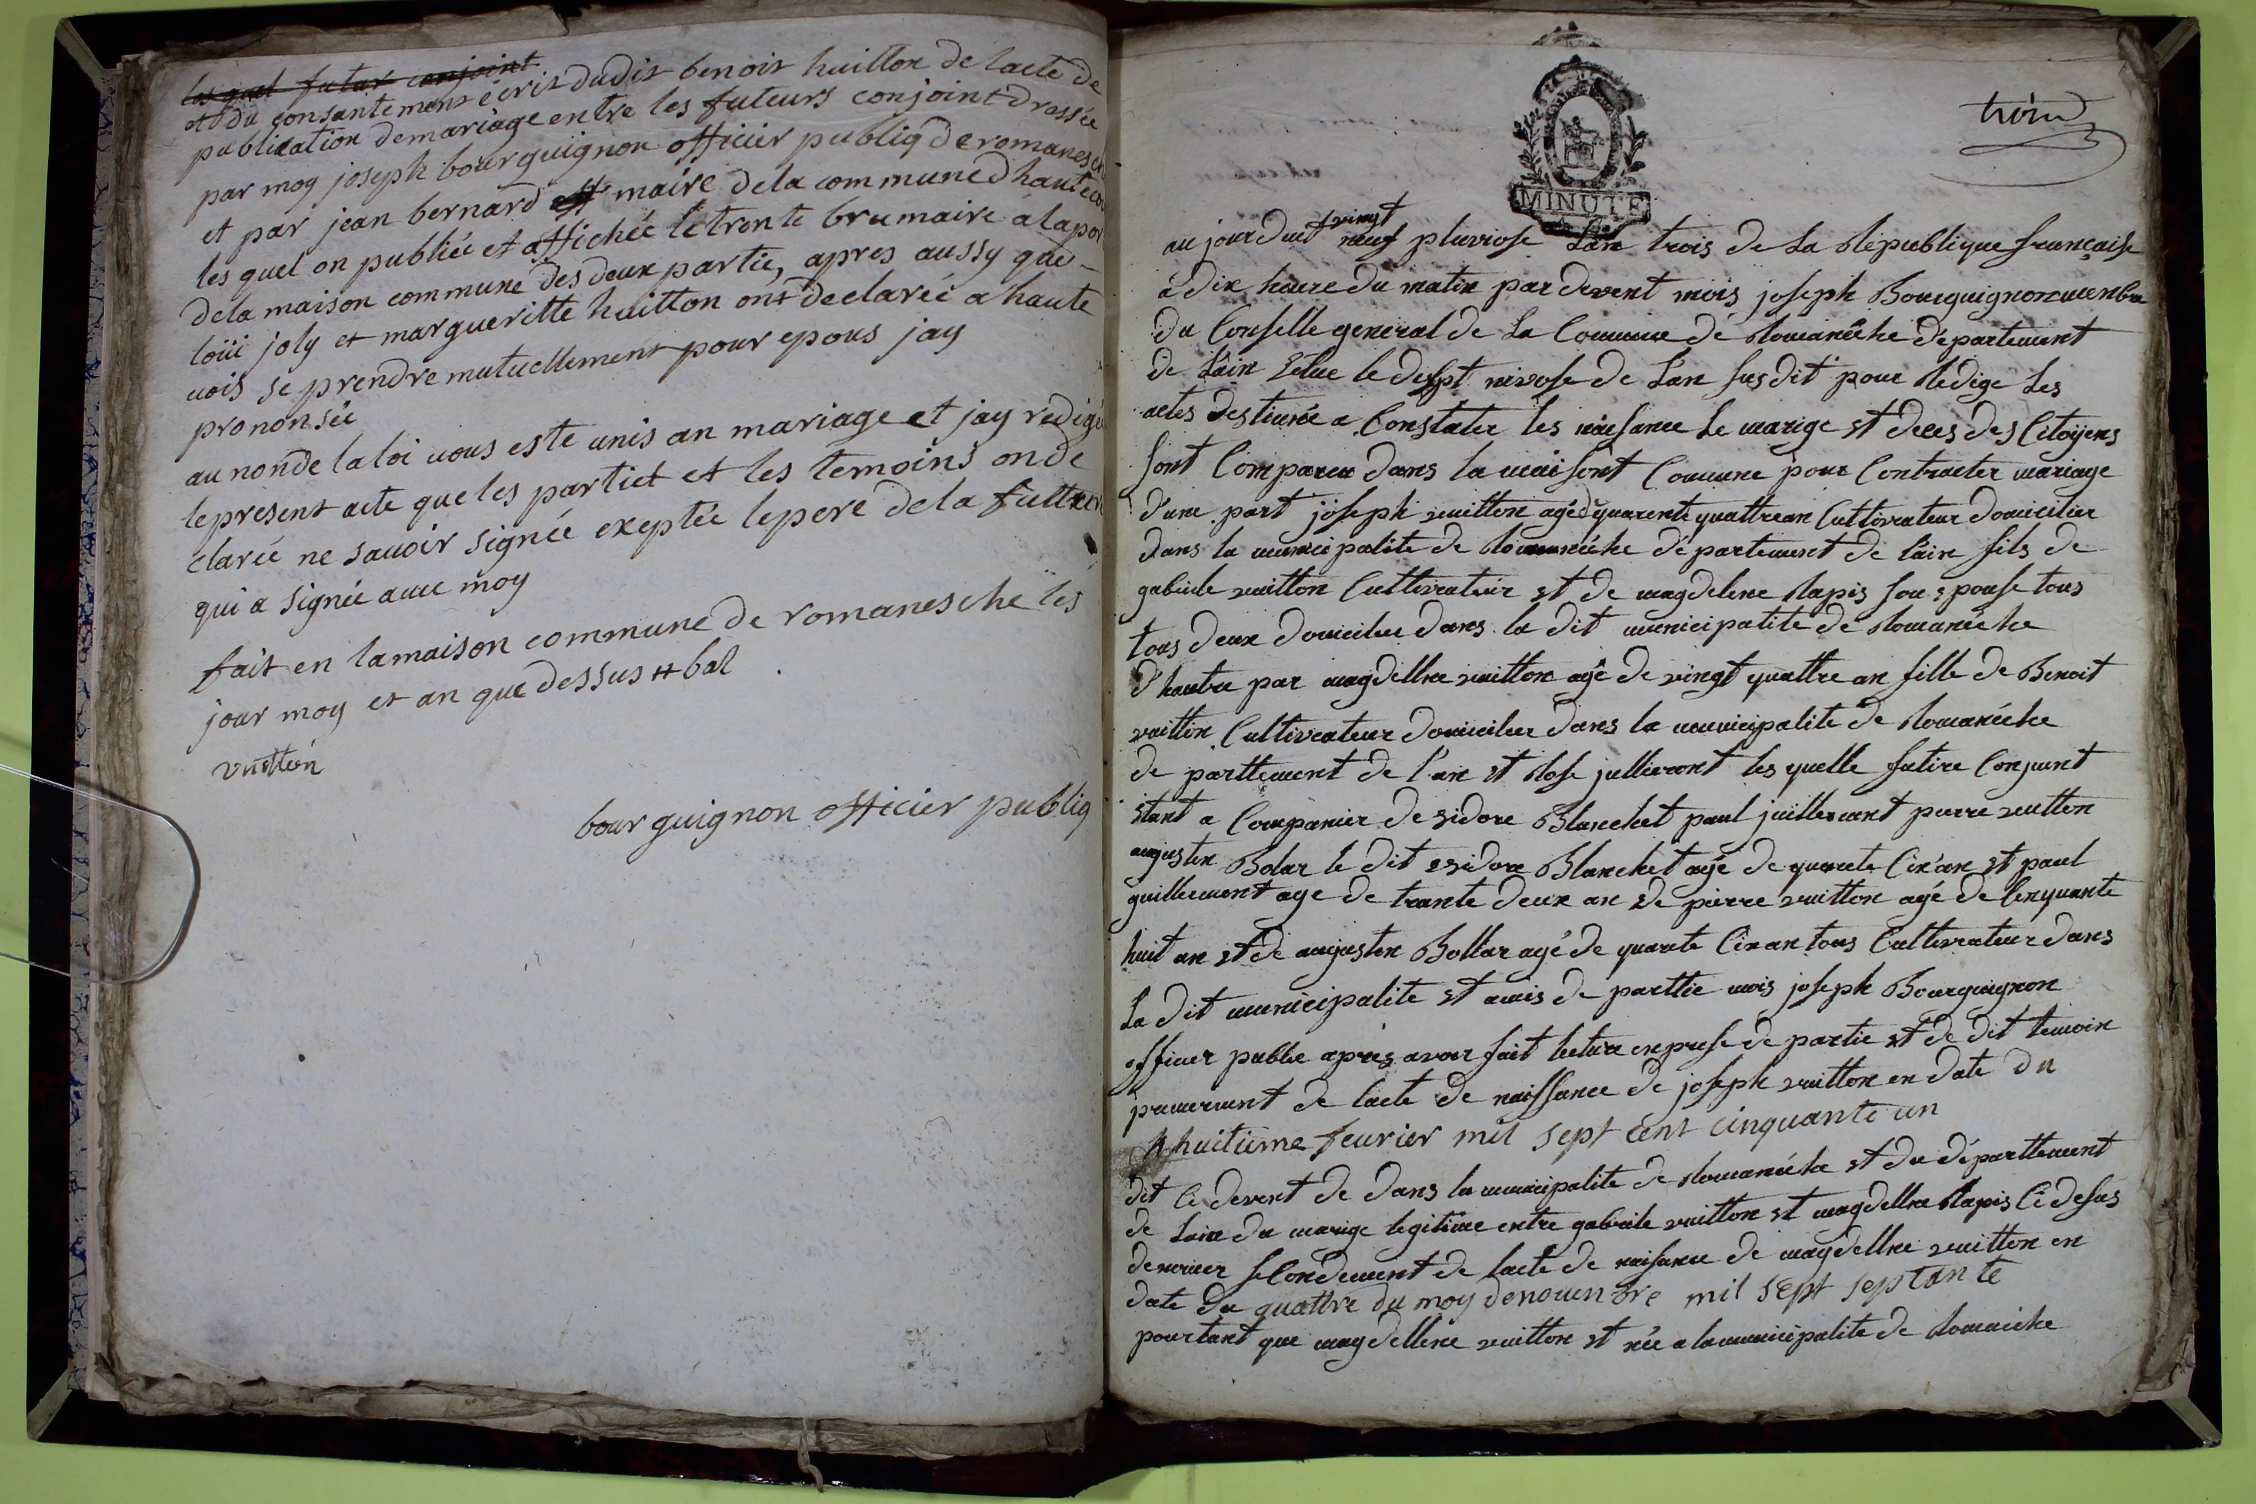 les quel futur conjoint
et du consantement écrit dudit benoit huitton de lacte de
publication demariage entre les futeurs conjoint drassée
par moy joseph bourguignon officier publiq de romanes
et par jean bernard off maire dela commune dhaute
les quel on publiée et affichée le trente brumaire á la por
dela maison commune des deux partie, apres aussy que
loüi joly et margueritte huitton ont declareé a haute
uois se prendre mutuellement pour epous jay
prononsée
au nonde la loi uous este unis an mariage et jay redigé
lepresent acte que les partiet et les temoins onde
clareé ne sauoir signée exeptée lepere dela futtur
qui a signée auue moy
fait en lamaison commune de romanesche les
jour moy et an que dessus # bal
vuitton
bourguignon officier publiq
trois
MINUTE
vingt
aujourduit neuf pluviose Lan trois de La République francaise
á dix heure du matin par devent mois joseph Bourguignon menbre
du Conselle general de La Commune dé Romanêche département
de Lain Eelue le dessept nivose de Lan susdit pour Redige Les
actes destineé a Constater les naisance Le marige et deces des Citoyens
sont Comparu dans la maisont Comune pour Contracter mariage
d'une part joseph vuitton agé dquarente quattre an Cultivateur domicilier
dans la municipalite de Romanéche département de lain fils de
gabriele vuitton Cultivateur et de magdelene Rapis son epouse tous
tous deux domicilee dans la dit municipalite de Romanéche
d'hautre par magdellne vuitton agé de vingt quattre an fille de Benoit
vuitton Cultivateur domicilier dans la municipalite de Romanéche
de parttement de l'an et Rose jullieront les quelle futire Conjunt
etant a Companier de sidore Blanchet paul juillierant pierre vuitton
augusten Bolar le dit esidore Blanchet agé de quarete Cin an et paul
guilliermont age de trante deux an de pierre vuitton agé de Cenquante
huit an et de augusten Bollar agé de quarete Cin an tous Cultivateur dans
La dit municipalite et amis de parttie mois joseph Bourguignon
officier publie apres avoir fait lecture en prese de partie et de dit temoin
premierment de lacte de naissance de joseph vuitton en date du
huitieme feurier mil sept cent cinquante un
dit Ci devent de dans la municipalite de Romanéche et du départtement
de Lain du marige legitime entre gabriele vuitton et magdellne Rapis Ci desus
denomer seCondement de lacte de naisance de magdellne vuitton en
date du quattre du moy denouenbre mil sept septante
pourtant que magdellene vuitton et née a la municipalite de Romaiche